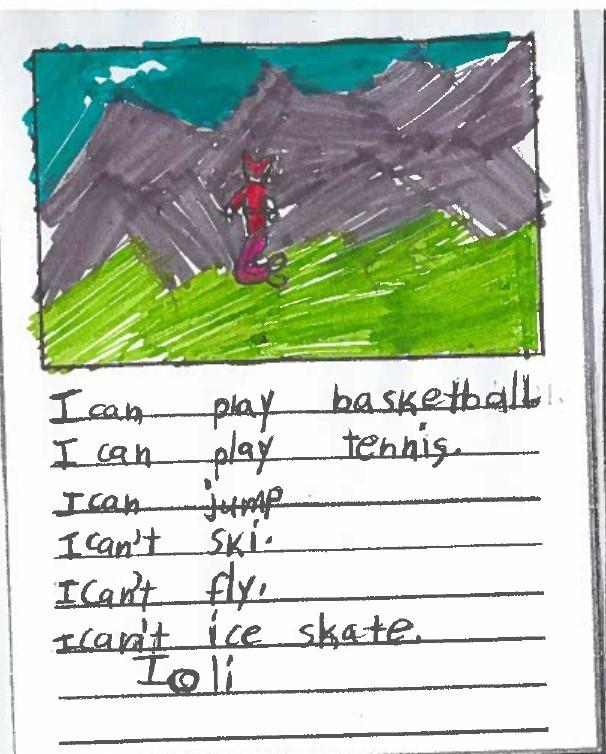 I can play basketball
I can play tennis.
I can jump
I can't ski.
I can't fly.
I can't ice skate.